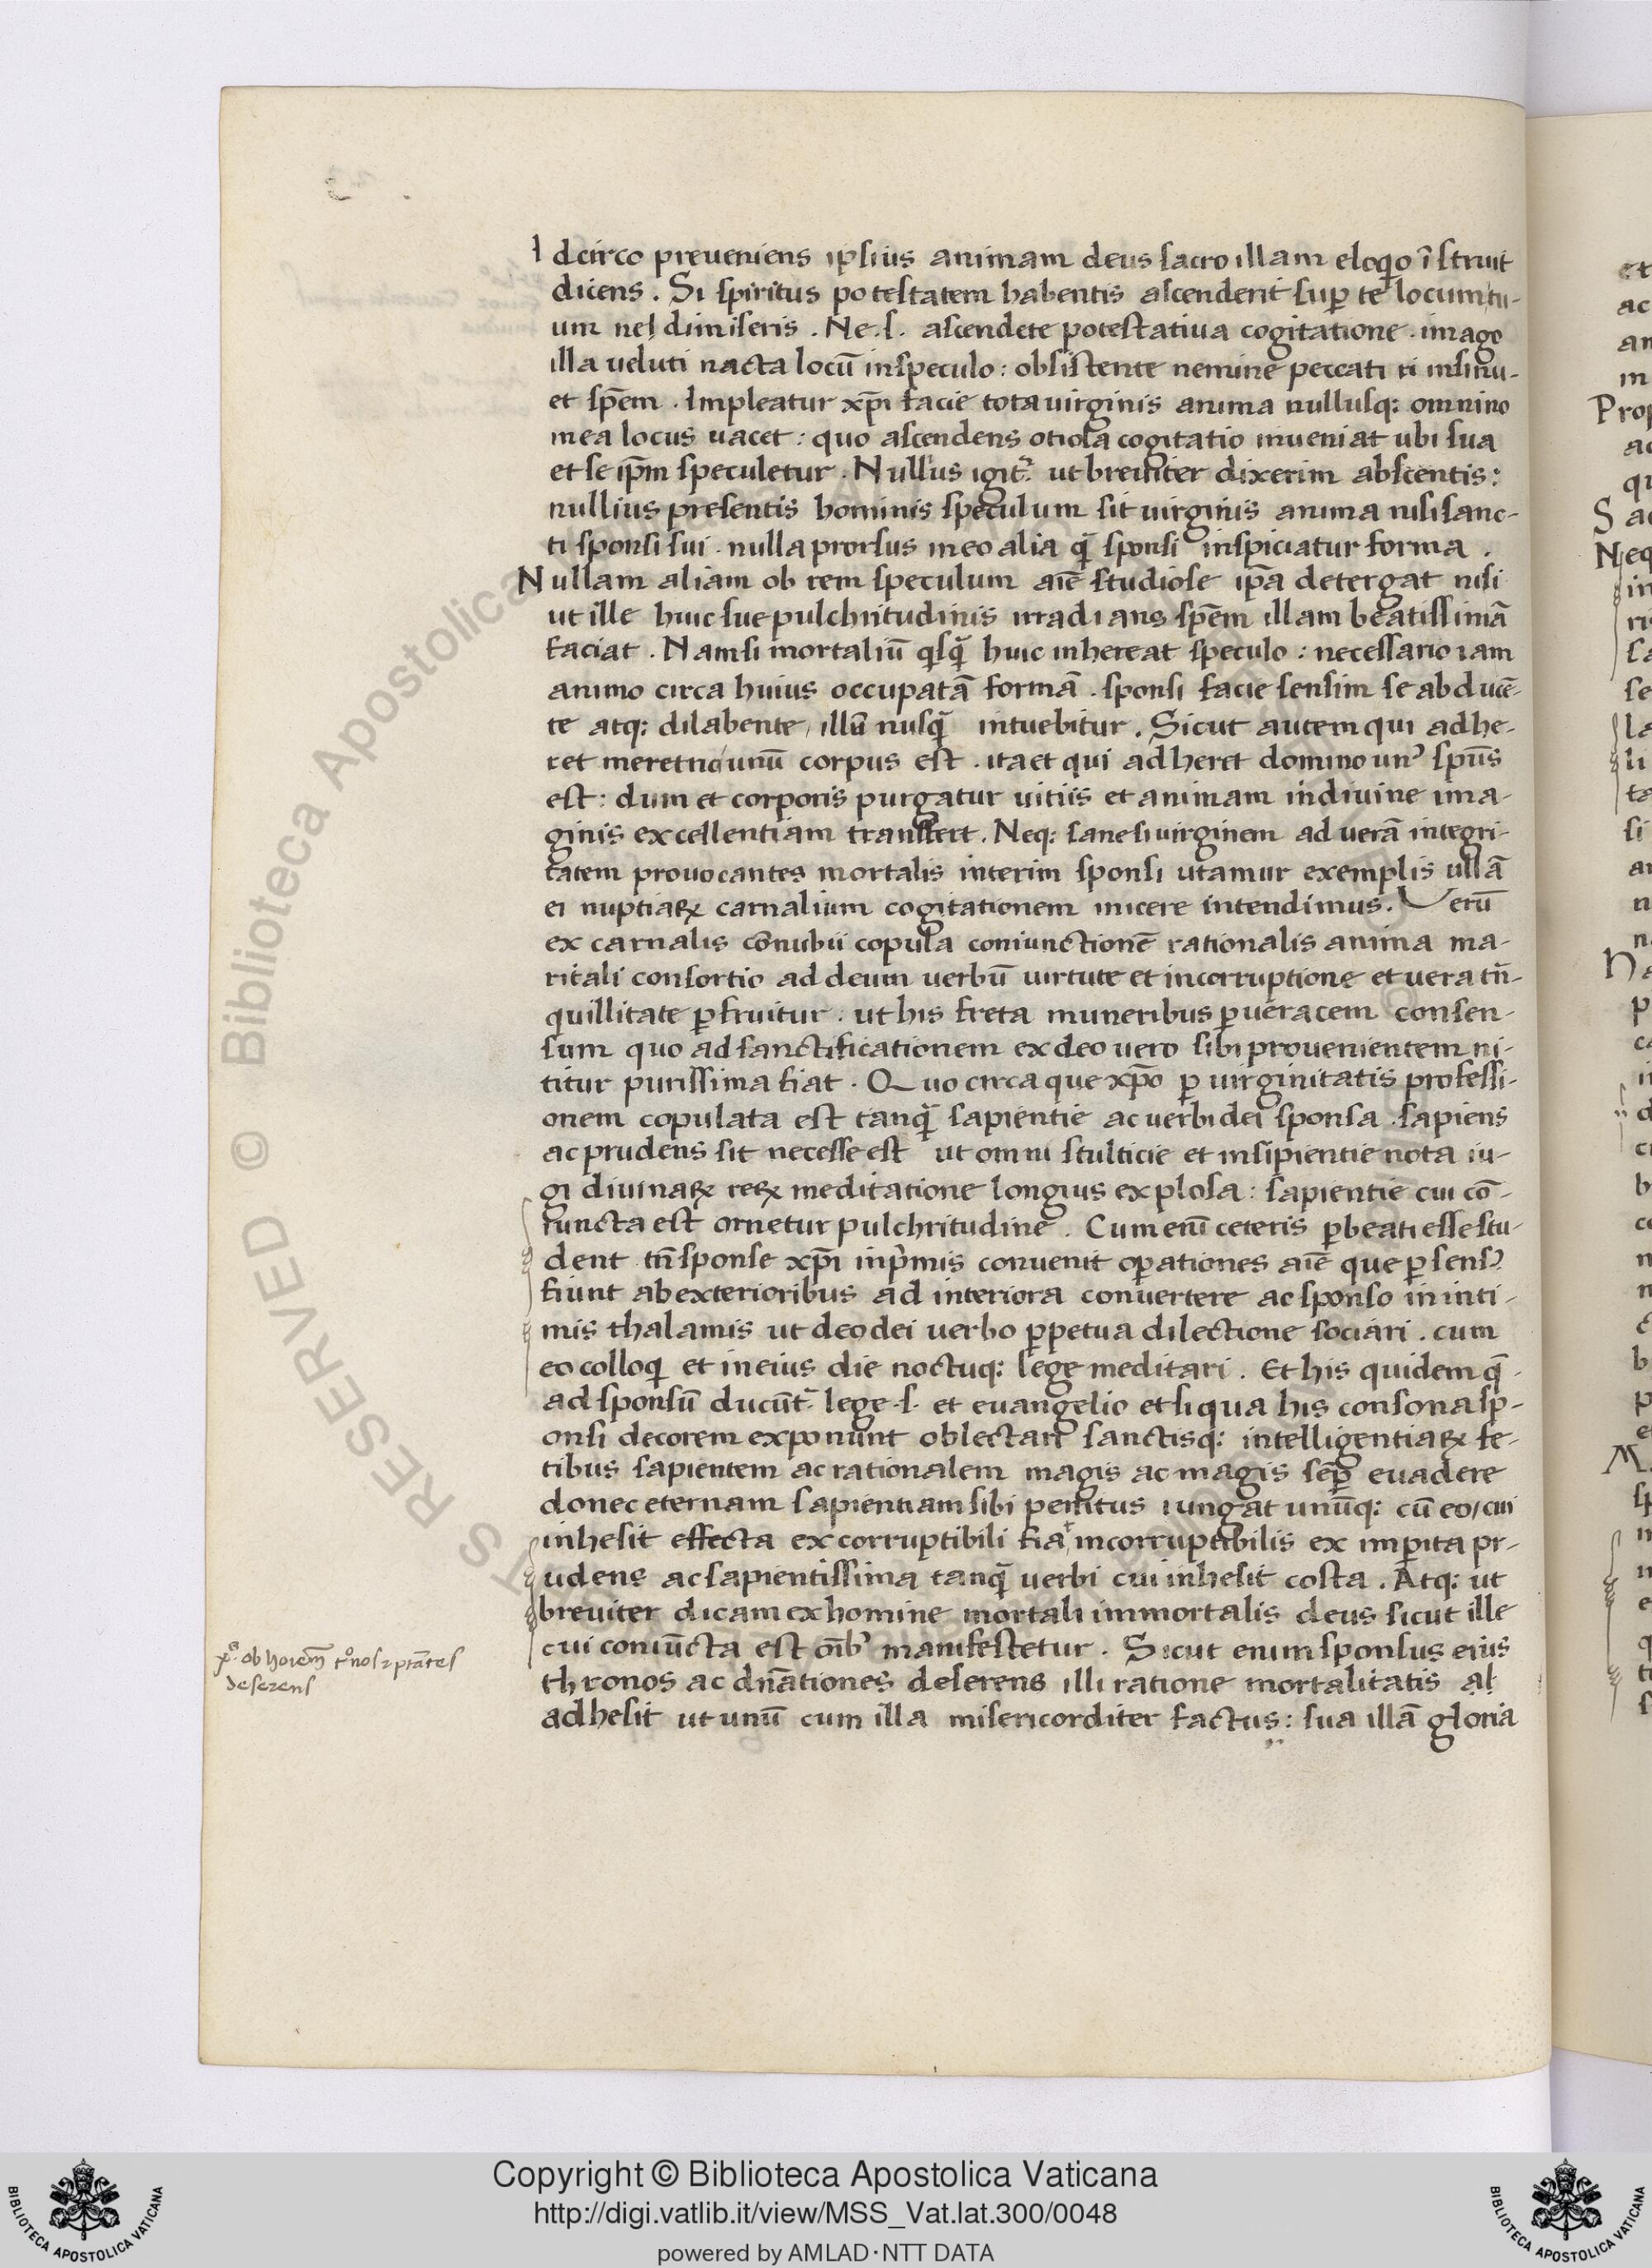 Idcirco preueniens ipsius animam deus sacro illam eloq̃o ĩstruit
dicens. Si spiritus potestatem habentis ascenderit sup̱ te locum tu-
um ne dimiseris. Ne .s. ascendete potestatiua cogitatione. imago
illa ueluti nacta locũ inspeculo: obsistente nemine peccati ei insinu-
et sp̄em. Impleatur xp̄i facie tota uirginis anima nullusq: omnino
mea locus uacet: quo ascendens otiosa cogitatio inueniat ubi sua
et se ip̄m speculetur. Nullius igit᷑ ut breuiter dixerim abscentis:
nullius presentis hominis speculum sit uirginis anima nisi sanc-
ti sponsi sui. nulla prorsus in eo alia q̄ sponsi inspiciatur forma.
Nullam aliam ob rem speculum aiē studiose ip̄a detergat nisi
ut ille huic sue pulchritudinis irradians sp̄em illam beatissimā
faciat. Nam si mortaliū q̇sq̄ huic inhereat speculo: necessario iam
animo circa huius occupatā formā. sponsi facie sensim se abducē-
te atq: dilabente, illū nusq̄ intuebitur. Sicut autem qui adhe-
ret meretrici unū corpus est. ita et qui adheret domino unꝰ sp̄us
est: dum et corporis purgatur uitiis et animam indiuine ima-
ginis excellentiam transfert. Neq: sane si uirginem ad uerā integri-
tatem prouocantes mortalis interim sponsi utamur exemplis ullā
ei nuptiaꝝ carnalium cogitationem inicere intendimus. Verū
ex carnalis cōnubii copula coniunctionē rationalis anima ma-
ritali consortio ad deum uerbū uirtute et incorruptione et uera trā-
quillitate ꝑfruitur. ut his freta muneribus ꝑ ueracem consen-
sum quo ad sanctificationem ex deo uero sibi prouenientem ni-
titur purissima fiat. Quo circa que xp̄o ꝑ uirginitatis professi-
onem copulata est tanq̄ sapientie ac uerbi dei sponsa. sapiens
ac prudens sit necesse est ut omni stulticie et insipientie nota iu-
gi diuinaꝝ reꝝ meditatione longius explosa: sapientie cui cō-
iuncta est ornetur pulchritudine. Cum enī ceteris ꝑbeati esse stu-
dent tn̄ sponse xp̄i inp̓mis conuenit oꝑationes aiē que ꝑ sensꝰ
fiunt ab exterioribus ad interiora conuertere ac sponso in inti-
mis thalamis ut deo dei uerbo ꝑpetua dilectione sociari. cum
eo colloq̇ et in eius die noctuq: lege meditari. Et his quidem q̄
ad sponsū ducūt᷑ lege .s. et euangelio et si qua his consona sp-
onsi decorem exponunt oblectari sanctisq: intelligentiaꝝ fe-
tibus sapientem ac rationalem magis ac magis semꝑ euadere
donec eternam sapientiam sibi penitus iungat unūq: cū eo, cui
inhesit effecta ex corruptibili fiat incorruptibilis ex imꝑita pr-
udens ac sapientissima tanq̄ uerbi cui inhesit costa. Atq: ut
breuiter dicam ex homine mortali immortalis deus sicut ille
cui coniūcta est oībꝰ manifestetur. Sicut enim sponsus eius
thronos ac dn̄ationes deserens illi ratione mortalitatis al
adhesit ut unū cum illa misericorditer factus: sua illā gloria
ob hoiem
deserens
Copyright © Biblioteca Apostolica Vaticana
http://digi.vatlib.it/view/MSS_Vat.lat.300/0048
powered by AMLAD·NTT DATA
BIBLIOTECA APOSTOLICA VATICANA
BIBLIOTECA APOSTOLICA VATICANA